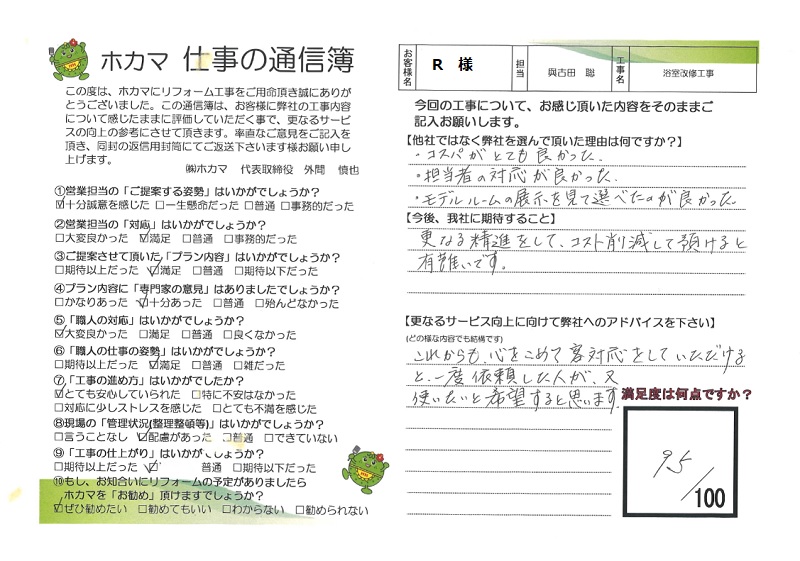 ホカマ 仕事の通信簿
この度は、ホカマにリフォーム工事をご用命頂き誠にありが
とうございました。この通信簿は、お客様に弊社の工事内容
について感じたままに評価していただく事で、更なるサービ
スの向上の参考にさせて頂きます。率直なご意見をご記入を
頂き、同封の返信用封筒にてご返送下さいます様お願い申し
上げます。
㈱ホカマ 代表取締役 外間 慎也
①営業担当の「ご提案する姿勢」はいかがでしょうか?
☑十分誠意を感じた □一生懸命だった □普通 □事務的だった
②営業担当の「対応」はいかがでしょうか?
□大変良かった ☑満足 □普通 □事務的だった
③ご提案させて頂いた「プラン内容」はいかがでしょうか?
□期待以上だった ☑満足 □普通 □期待以下だった
④プラン内容に「専門家の意見」はありましたでしょうか?
□かなりあった ☑十分あった □普通 □殆んどなかった
⑤「職人の対応」はいかがでしょうか?
☑大変良かった □満足 □普通 □良くなかった
⑥「職人の仕事の姿勢」はいかがでしょうか?
□期待以上だった ☑満足 □普通 □雑だった
⑦「工事の進め方」はいかがでしたか?
☑とても安心していられた □特に不安はなかった
□対応に少しストレスを感じた □とても不満を感じた
⑧現場の「管理状況(整理整頓等)」はいかがでしょうか?
□言うことなし ☑配慮があった □普通 □できていない
⑨「工事の仕上がり」はいかがでしょうか?
□期待以上だった ☑ 普通 □期待以下だった
⑩もし、お知合いにリフォームの予定がありましたら
ホカマを「お勧め」頂けますでしょうか?
☑ぜひ勧めたい □勧めてもいい □わからない □勧められない
お客様名 R 様 担当 與古田 聡 工事名 浴室改修工事
今回の工事について、お感じ頂いた内容をそのままご
記入お願いします。
【他社ではなく弊社を選んで頂いた理由は何ですか?】
・コスパがとても良かった.
・担当者の対応が良かった.
・モデルルームの展示を見て選べたのが良かった.
【今後、我社に期待すること】
更なる精進をして、コスト削減して頂けると
有難いです。
【更なるサービス向上に向けて弊社へのアドバイスを下さい】
(どの様な内容でも結構です)
これからも、心をこめて客対応をしていただける
と、一度依頼した人が、又
使いたいと希望すると思います.
満足度は何点ですか?
95/100